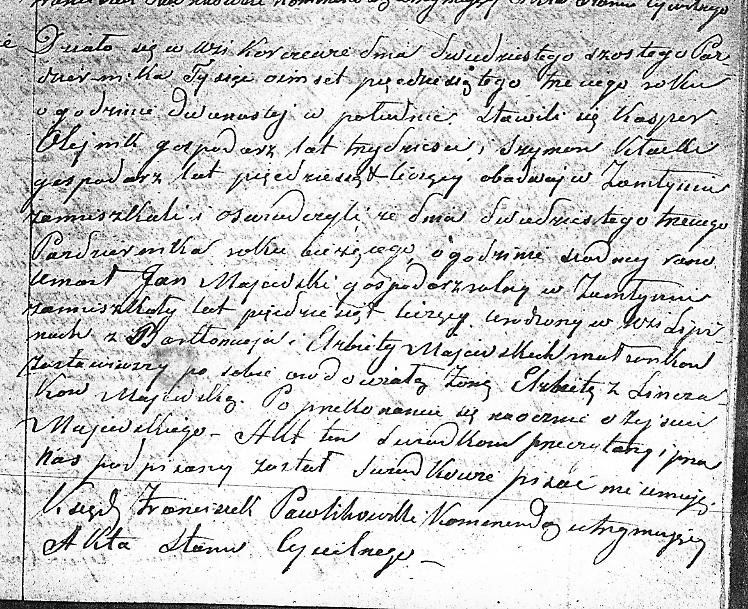 Stanu Cywilnego
Działo się w Wsi Korczewie dnia dwudziestego szóstego Paź-
dziernika Tysiąc ośmset pięćdziesiątego trzeciego roku
o godzinie dwunastej w południe. Stawili się Kasper
Olejnik gospodarz lat trzydzieści i Szymon Kładki
gospodarz lat pięćdziesiąt liczący obadwaj w Zamłyniu
zamieszkali i oświadczyli że dnia dwudziestego trzeciego
Październnika roku bieżącego, o godzinie siódmey rano
umarł Jan Majewski gospodarz rolny w Zamłyniu
zamieszkały lat pięćdziesiąt liczący urodzony w Wsi Lipi-
nach z Bartłomieja i Elżbiety Majewskich małżonków
zostawiwszy po sobie owdowiałą żonę Elżbietę z Lincza-
ków Majewską. Po przekonaniu się naocznie o zejściu
Majewskiego – Akt ten świadkom przeczytany i przez
nas podpisany został świadkowie pisać nie umieją.
Ksiądz Franciszek Pawlikowski Komendarz utrzymujący
Akta Stanu Cywilnego –